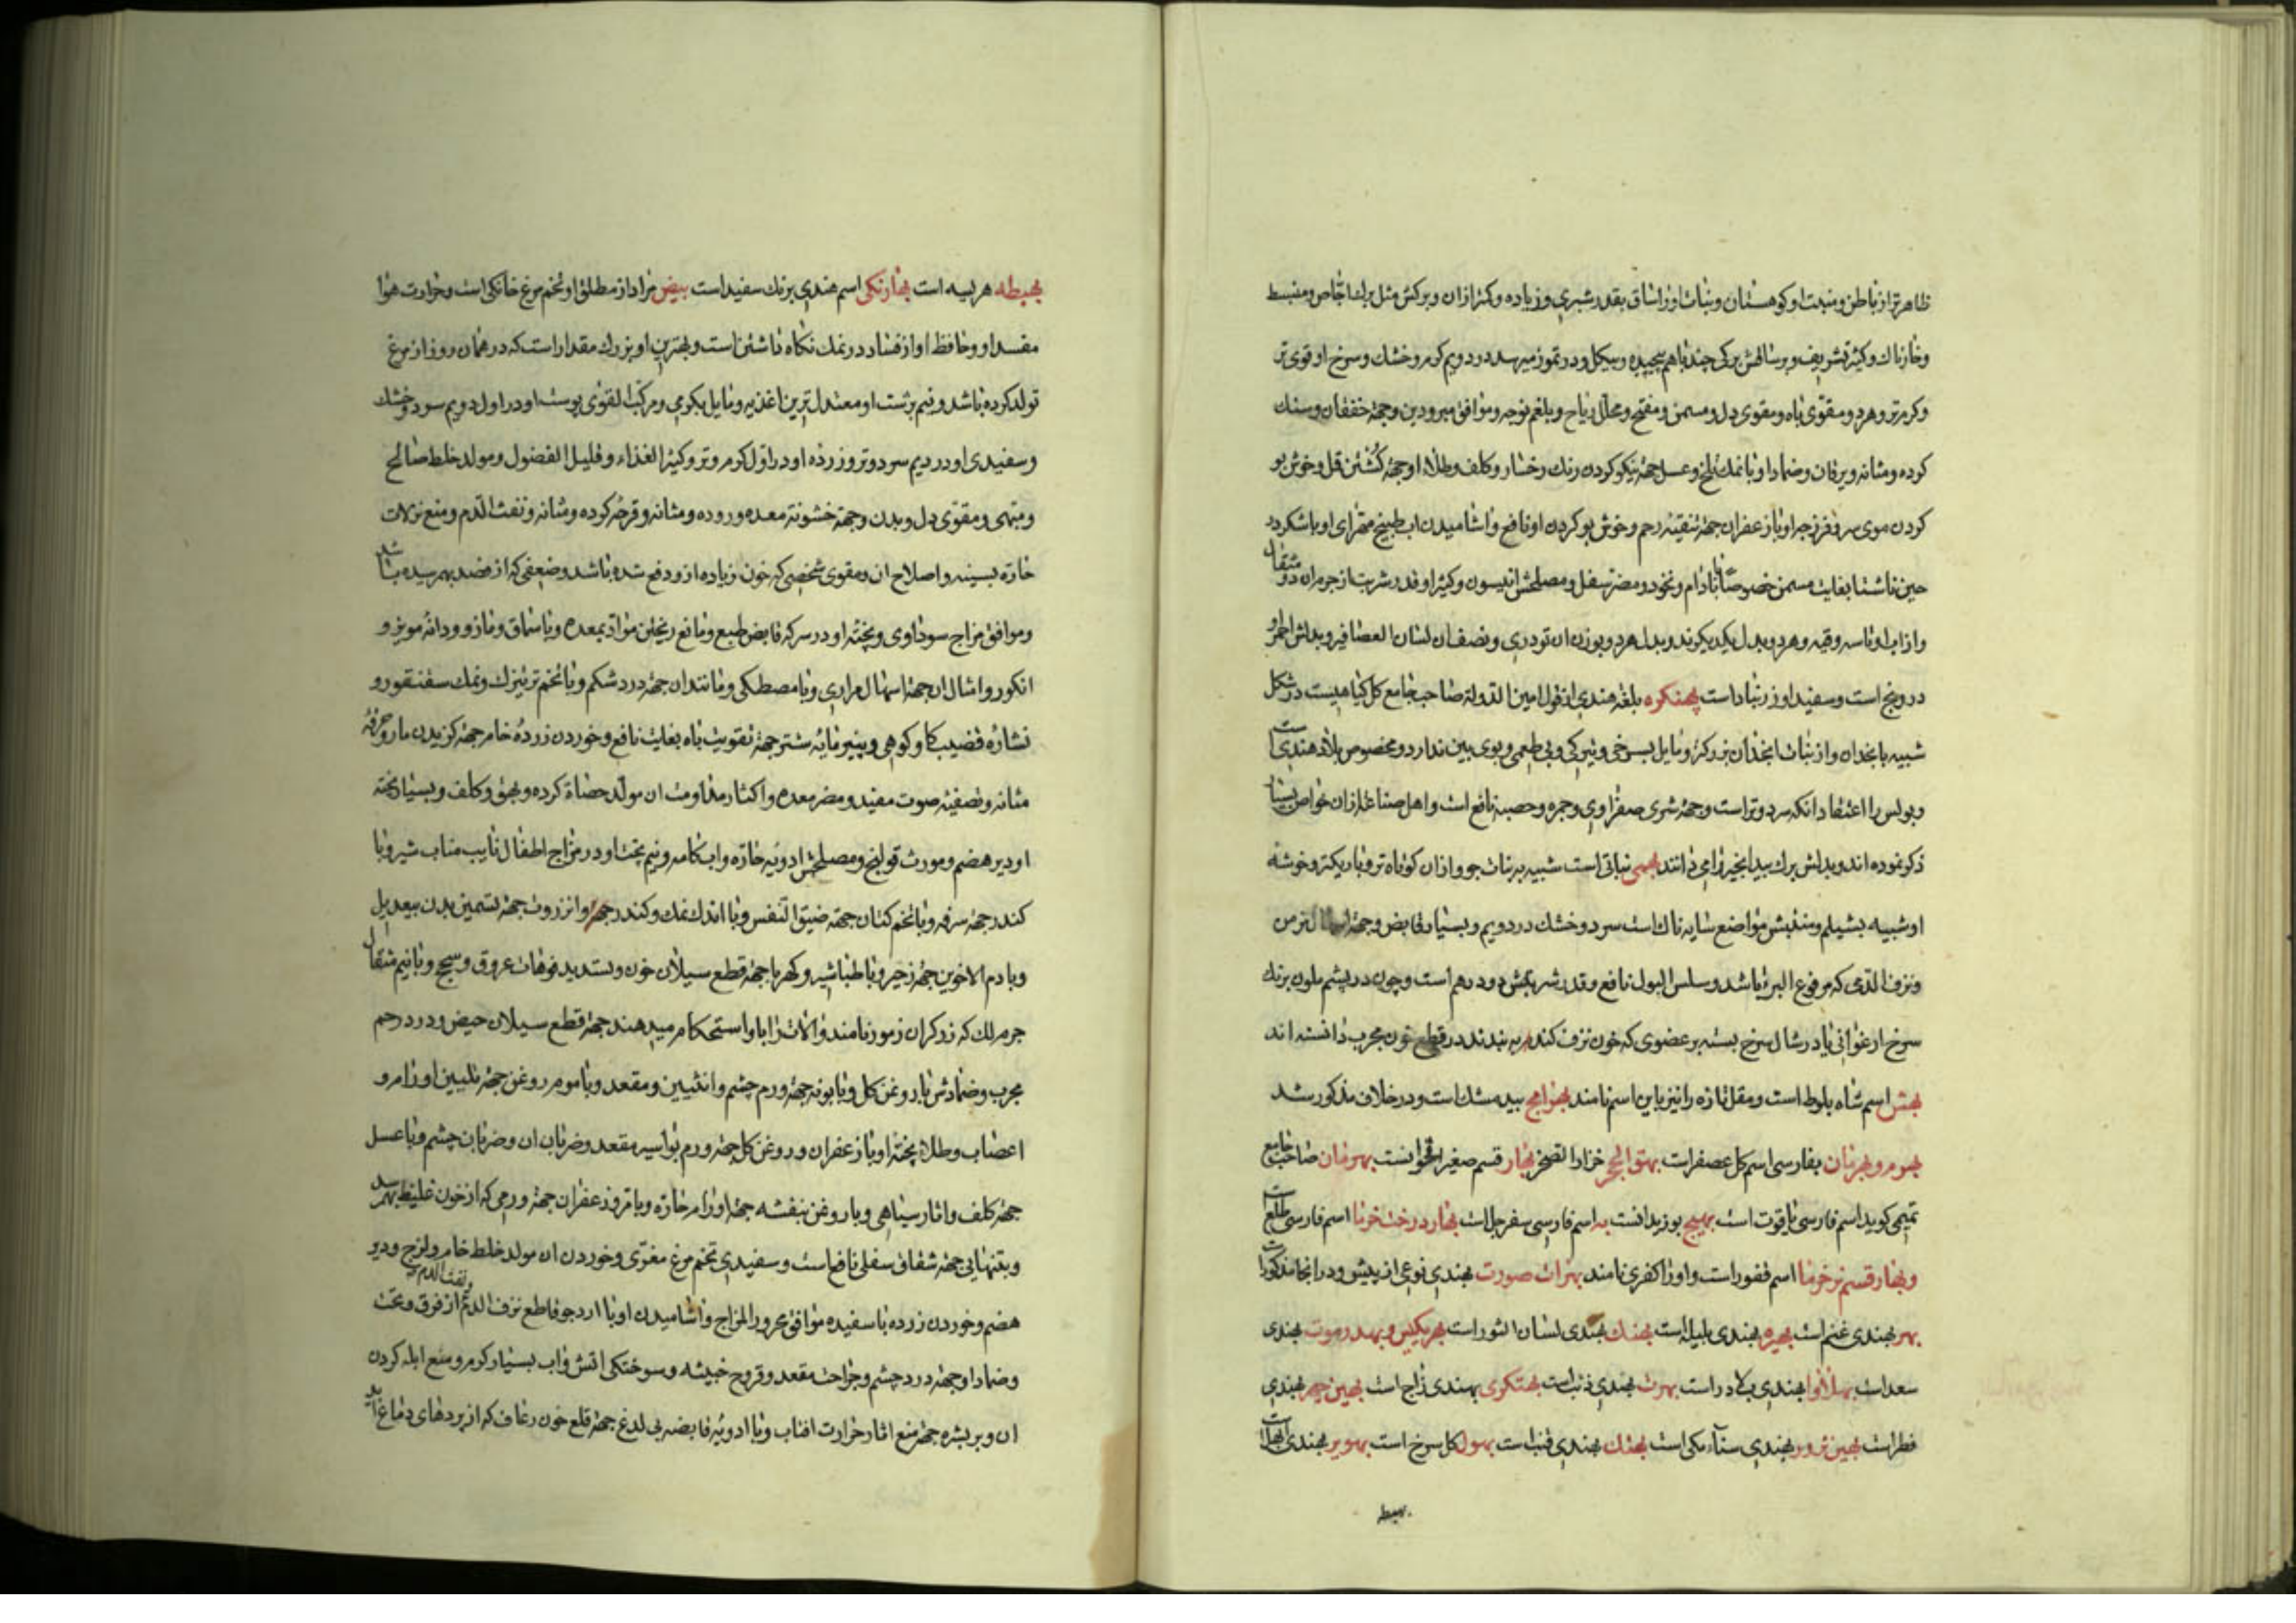 ظاهرتر از باطن و منبت او کوهستان و نبات او را ساق بقدر شبری و زیاده و کمتر از آن و برکش مثل برك اجاص و منبسط
و خارناك و کثیر تشریف و بر ساقش برکی چند باهم پیچیده و بیکل و در تموز میرسد در دویم کرم و خشك و سرخ او قوی تر
و کرمتر و هر دو مقوی باه و مقوی دل و مسمن و مفتح و محلل ریاح و بلغم لزجه و موافق مبرودین و جهة خفقان و سنك
کرده و مثانه و یرقان و ضماد او با نمك تلخ و عسل جهة نیکو کردن رنك رخسار و کلف و طلاء او جهة کشتن قمل و خوش بو
کردن موی سر و فرزجه او با زعفران جهة تنقیه رحم و خوش بو کردن او نافع و آشامیدن آب طبیخ مهرای او با شکر در
حین ناشتا بغایت مسمن خصوصا با بادام و نخود و مضر سفل و مصلحش انیسون و کثیرا و قدر شربت از جرم آن دو مثقال
و از آب او تا سه وقیه و هر دو بدل یکدیکرند و بدل هر دو بوزن آن تودری و نصف آن لسان العصافیر و بدل احمر او
درونج است و سفید او زرنباد است بهنکره بلغة هندی از قول امین الدوله صاحب جامع کل کیاهیست در شکل
شبیه بانجدان و از نبات انجدان بزرکتر و مایل بسرخی و تیرکی و بی طعمی و بوی بین ندارد و مخصوص بلاد هند است
و بولس را اعتقاد آنکه سرد و تر است و جهة شری صفراوی و جمره و حصبه نافع است و اهل صناعة از آن خواص بسیار
ذکر نموده اند و بدلش برك بید انجیر را می دانند بهمی نباتی است شبیه به نبات جو و از آن کوتاه تر و باریکتر و خوشه
او شبیه بشیلم و منبتش مواضع سایه ناك است سرد و خشك در دویم و بسیار قابض و جهة اسهال مزمن
و نزف الدمی که مرفوع البرء باشد و سلس البول نافع و قدر شربتش دو درهم است و چون در پشم ملون برنك
سرخ ارغوانی یا در شال سرخ بسته بر عضوی که خون نزف کند به بندند در قطع خون مجرب دانسته اند
بهش اسم شاه بلوط است و مقل تازه را نیز باین اسم نامند بهرامج بید مشك است و در خلاف مذکور شد
بهرم و بهرمان بفارسی اسم کل عصفر است بهتوالحجر خزار الصخر بهار قسم صغیر اقحوانست بهرمان صاحب جامع
تمیمی کوید اسم فارسی یاقوت است بهیج بوزیدانست به اسم فارسی سفرجل است بهار درخت خرما اسم فارسی طلع است
و بهار قسم نر خرما اسم قفور است و او را کفری نامند بهرات صورت بهندی نوعی از بیش و در آنجا مذکور است
بهر بهندی غنم است بهیره بهندی بلیله است بهنك بهندی لسان الثور است بهریکیس و بهدرموت بهندی
سعد است بهلاوا بهندی بلادر است بهرت بهندی ذئب است بهتکری بهندی زاج است بهین چهر بهندی
فطر است بهین ترور بهندی سناء مکی است بهنك بهندی قنب است بهول کل سرخ است بهویر بهندی
بهیطه
بهیطه هریسه است بهارنکی اسم هندی برنك سفید است بیض مراد از مطلق او تخم مرغ خانکی است و حرارت هوا
مفسد او و حافظ او از فساد در نمك نکاه داشتن است و بهترین او بزرك مقدار است که در همان روز از مرغ
تولد کرده باشد و نیم برشت او معتدل ترین اغذیه و مایل بکرمی و مرکب القوی پوست او در اول دویم سرد و خشك
و سفیدی او در دیم سرد و تر و زرده او در اول کرم و تر و کثیر الغذاء و قلیل الفضول و مولد خلط صالح
و مبهی و مقوی دل و بدن و جهة خشونة معده و روده و مثانه و قرحه کرده و مثانه و نفث الدم و منع نزلات
حاره بسینه و اصلاح آن و مقوی شخصی که خون زیاده ازو دفع شده باشد و ضعفی که از فصد بهم رسیده باشد
و موافق مزاج سوداوی و پخته او در سرکه قابض طبع و مانع ریختن مواد بمعده و با سماق و مازو و دانه مویز و
انکور و امثال آن جهة اسهال مراری و با مصطکی و مانند آن جهة درد شکم و با تخم ترتیزك و نمك سقنقور و
نشاره قضیب کاو کوهی و پنیر مایه شتر جهة تقویت باه بغایت نافع و خوردن زرده خام جهة کزیدن مار و حرقة
مثانه و تصفیه صوت مفید و مضر معده و اکثار مداومت آن مولد حصاة کرده و بهق و کلف و بسیار پخته
او دیر هضم و مورث قولنج و مصلحش ادویه حاره و آب کامه و نیم پخت او در مزاج اطفال نایب مناب شیر و با
کندر جهة سرفه و با تخم کتان جهة ضیق النفس و با اندك نمك و کندر جهة و انزروت جهة تسمین بدن بیعدیل
و با دم الاخوین جهة زحیر و با طباشیر و کهربا جهة قطع سیلان خون و تسدید فوهات عروق و سحج و با نیم مثقال
جرم لك که زرکران زمود نامند و آلات را باو استحکام میدهند جهة قطع سیلان حیض و درد رحم
مجرب و ضمادش با روغن کل و بابونه جهة ورم چشم و انثیین و مقعد و با موم روغن جهة تلیین اورام و
اعصاب و طلاء پخته او با زعفران و روغن کل جهة ورم بواسیر مقعد و ضربان آن و ضربان چشم و با عسل
جهة کلف و آثار سیاهی و با روغن بنفشه جهة اورام حاره و با مر و زعفران جهة ورمی که از خون غلیظ بهم رسد
و بتنهایی جهة شقاق سفلی نافع است و سفیدی تخم مرغ مغری و خوردن آن مولد خلط خام و لزج و دیر
هضم و خوردن زرده با سفیده موافق محرور المزاج و آشامیدن او با آرد جو قاطع نزف الدم و نفث الدم از فوق و تحت
و ضماد او جهة درد چشم و جراحت مقعد و قروح خبیثه و سوختکی آتش و آب بسیار کرم و منع آبله کردن
آن و بر بشره جهة منع آثار حرارت آفتاب و با ادویه قابضه بی لدغ جهة قلع خون رعاف که از پردهای دماغ آید